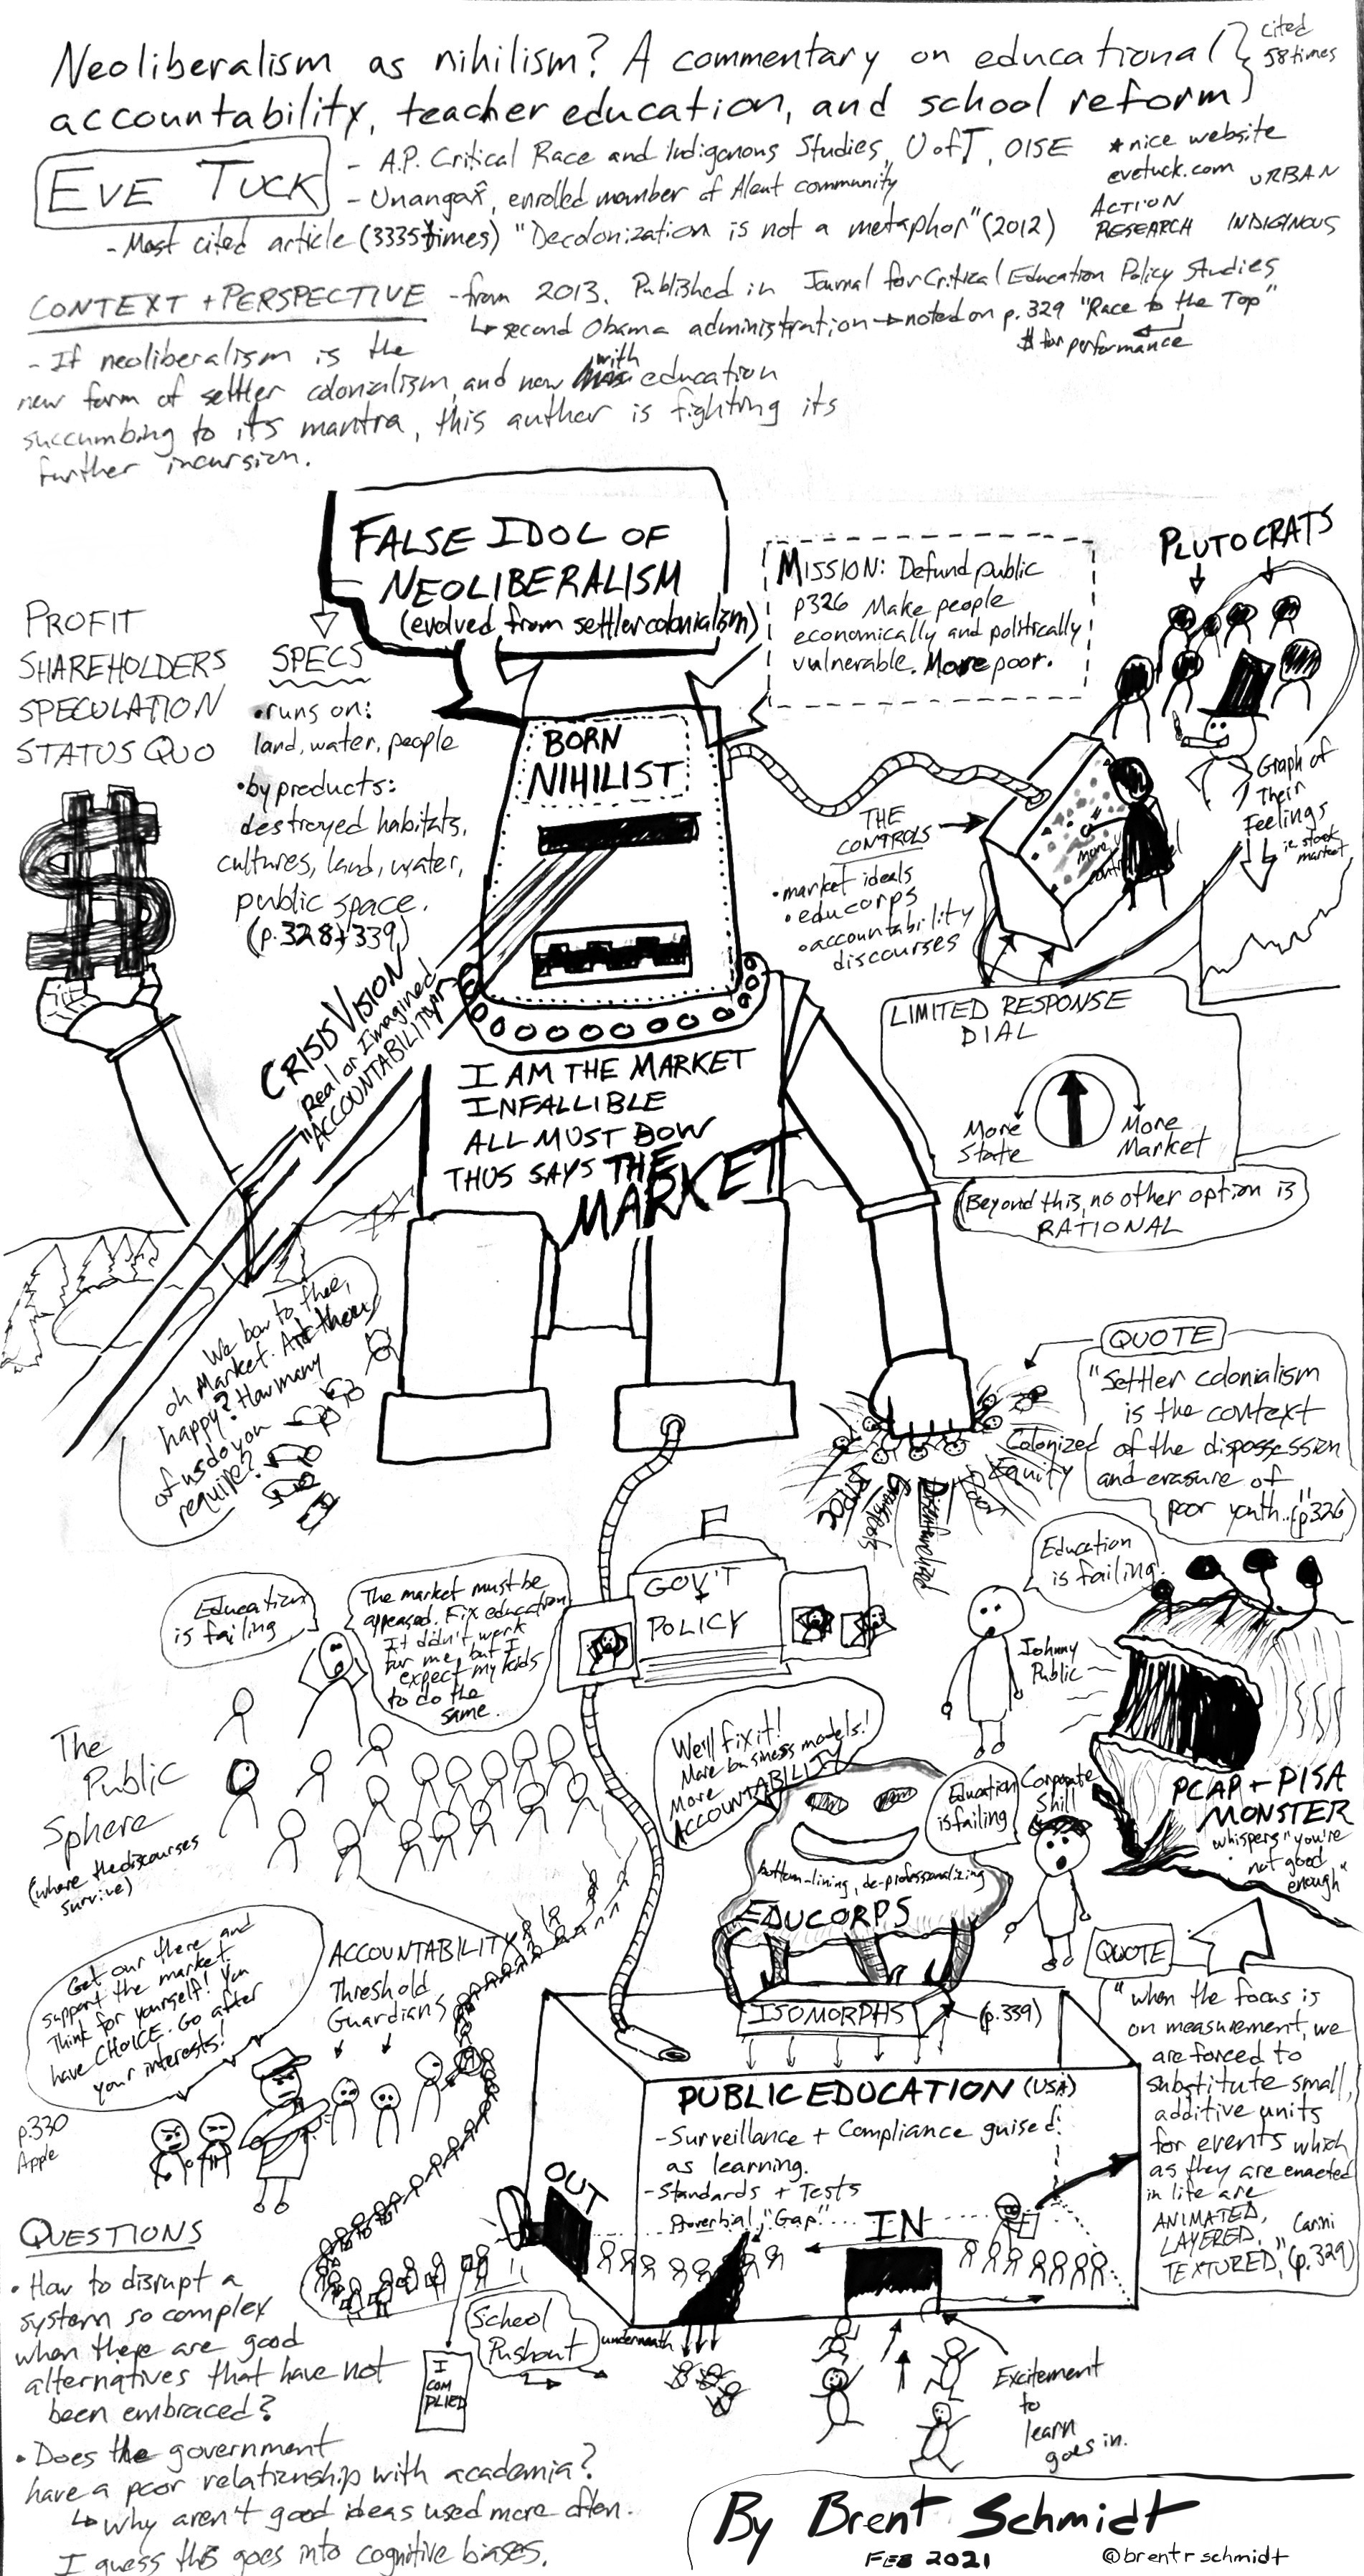 Neoliberalism as nihilism? A commentary on educational
accountability, teacher education, and school reform
cited
58 times
EVE TUCK
- A.P. Critical Race and Indigenous Studies, U of T, OISE
- Unangax̂, enrolled member of Aleut community
- Most cited article (3335 times) "Decolonization is not a metaphor" (2012)
* nice website
evetuck.com
URBAN
ACTION
RESEARCH
INDIGINOUS
CONTEXT + PERSPECTIVE
- from 2013. Published in Journal for Critical Education Policy Studies
↳ second Obama administration → noted on p. 329 "Race to the Top"
$ for performance
- If neoliberalism is the
new form of settler colonialism, and now with education
succumbing to its mantra, this author is fighting its
further incursion.
FALSE IDOL OF
NEOLIBERALISM
(evolved from settler colonialism)
MISSION: Defund public
p326 Make people
economically and politically
vulnerable. More poor.
PLUTOCRATS
PROFIT
SHAREHOLDERS
SPECULATION
STATUS QUO
SPECS
• runs on:
land, water, people
• byproducts:
destroyed habitats,
cultures, land, water,
public space.
(p. 328 + 339)
BORN
NIHILIST
THE
CONTROLS
• market ideals
• educorps
• accountability
discourses
Graph of
Their
Feelings
i.e. stock
market
CRISIS VISION
Real or Imagined
"ACCOUNTABILITY"
I AM THE MARKET
INFALLIBLE
ALL MUST BOW
THUS SAYS THE
MARKET
LIMITED RESPONSE
DIAL
More
State
More
Market
(Beyond this, no other option is
RATIONAL
We bow to thee,
oh Market. Art thou
happy? How many
of us do you
require?
QUOTE
"Settler colonialism
is the context
of the dispossession
and erasure of
poor youth.." (p326)
Colonized
Equity
Poor
Disenfranchized
GOV'T
POLICY
Education
is failing
The market must be
appeased. Fix education
It didn't work
for me, but I
expect my kids
to do the
same.
Education
is failing.
Johnny
Public
The
Public
Sphere
(where the discourses
survive)
We'll fix it!
More business models!
More
ACCOUNTABILITY
Education
is failing
Corporate
Shill
PCAP + PISA
MONSTER
whispers "you're
not good
enough"
bottom-lining, de-professionalizing
EDUCORPS
Get our there and
support the market.
Think for yourself! You
have CHOICE. Go after
your interests!
p.330
Apple
ACCOUNTABILITY
Threshold
Guardians
ISOMORPHS
(p.339)
PUBLIC EDUCATION (USA)
- Surveillance + Compliance guised
as learning.
- Standards + Tests
Proverbial "Gap"
OUT
IN
QUOTE
"when the focus is
on measurement, we
are forced to
substitute small,
additive units
for events which
as they are enacted
in life are
ANIMATED,
LAYERED,
TEXTURED," Carini (p.329)
QUESTIONS
• How to disrupt a
system so complex
when there are good
alternatives that have not
been embraced?
• Does the government
have a poor relationship with academia?
↳ why aren't good ideas used more often.
I guess this goes into cognitive biases.
School
Pushout
underneath
I
COM
PLIED
Excitement
to
learn
goes in.
By Brent Schmidt
FEB 2021
@brentrschmidt